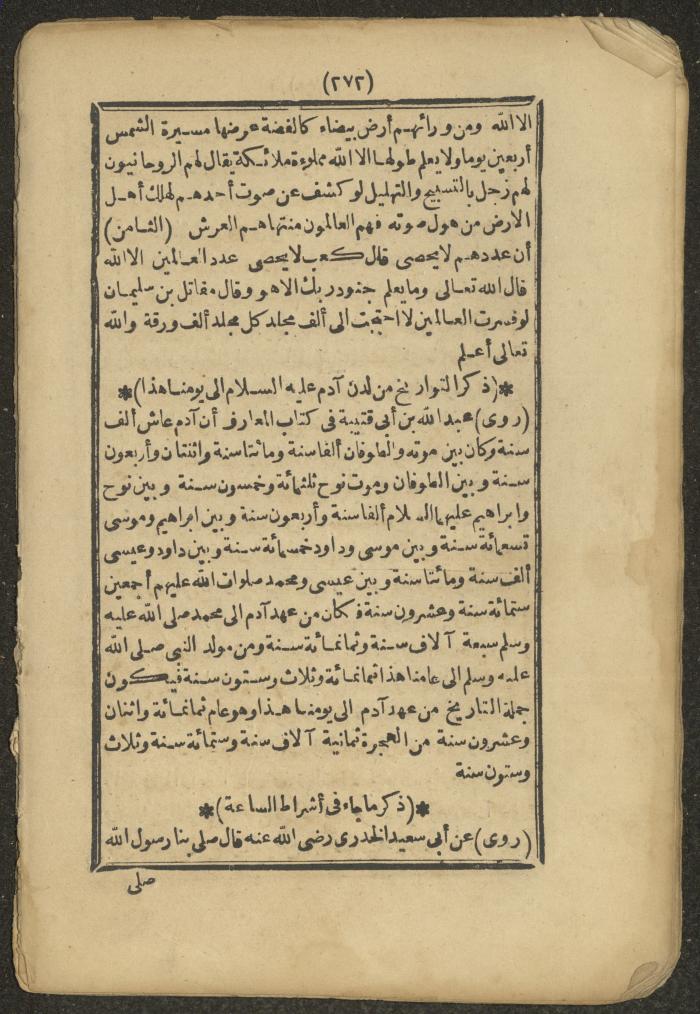 (٢٧٢)
الا الله ومن ورائهم أرض بيضاء كالفضة عرضها مسيرة الشمس
أربعين يوما ولا يعلم طولها الا الله مملوءة ملائكة يقال لهم الروحانيون
لهم زجل بالتسبيح والتهليل لو كشف عن صوت أحدهم لهلك أهل
الارض من هول صوته فهم العالمون منتهاهم العرش (الثامن)
أن عددهم لا يحصى قال كعب لا يحصى عدد العالمين الا الله
قال الله تعالى وما يعلم جنود ربك الا هو وقال مقاتل بن سليمان
لو فسرت العالمين لا احتجت الى ألف مجلد كل مجلد ألف ورقة والله
تعالى أعلم
*(ذكر التواريخ من لدن آدم عليه السلام الى يومنا هذا)*
(روى) عبد الله بن أبى قتيبة فى كتاب المعارف أن آدم عاش ألف
سنة وكان بين موته والطوفان ألفا سنة ومائتا سنة واثنتان وأربعون
سنة وبين الطوفان وموت نوح ثلثمائة وخمسون سنة وبين نوح
وابراهيم عليهما السلام ألفا سنة وأربعون سنة وبين ابراهيم وموسى
تسعمائة سنة وبين موسى وداود خمسمائة سنة وبين داود وعيسى
ألف سنة ومائتا سنة وبين عيسى ومحمد صلوات الله عليهم أجمعين
ستمائة سنة وعشرون سنة فكان من عهد آدم الى محمد صلى الله عليه
وسلم سبعة آلاف سنة وثمانمائة سنة ومن مولد النبى صلى الله
عليه وسلم الى عامنا هذا ثمانمائة وثلاث وستون سنة فيكون
جملة التاريخ من عهد آدم الى يومنا هذا وهو عام ثمانمائة واثنان
وعشرون سنة من الهجرة ثمانية آلاف سنة وستمائة سنة وثلاث
وستون سنة
*(ذكر ما جاء فى أشراط الساعة)*
(روى) عن أبى سعيد الخدرى رضى الله عنه قال صلى بنا رسول الله
صلى